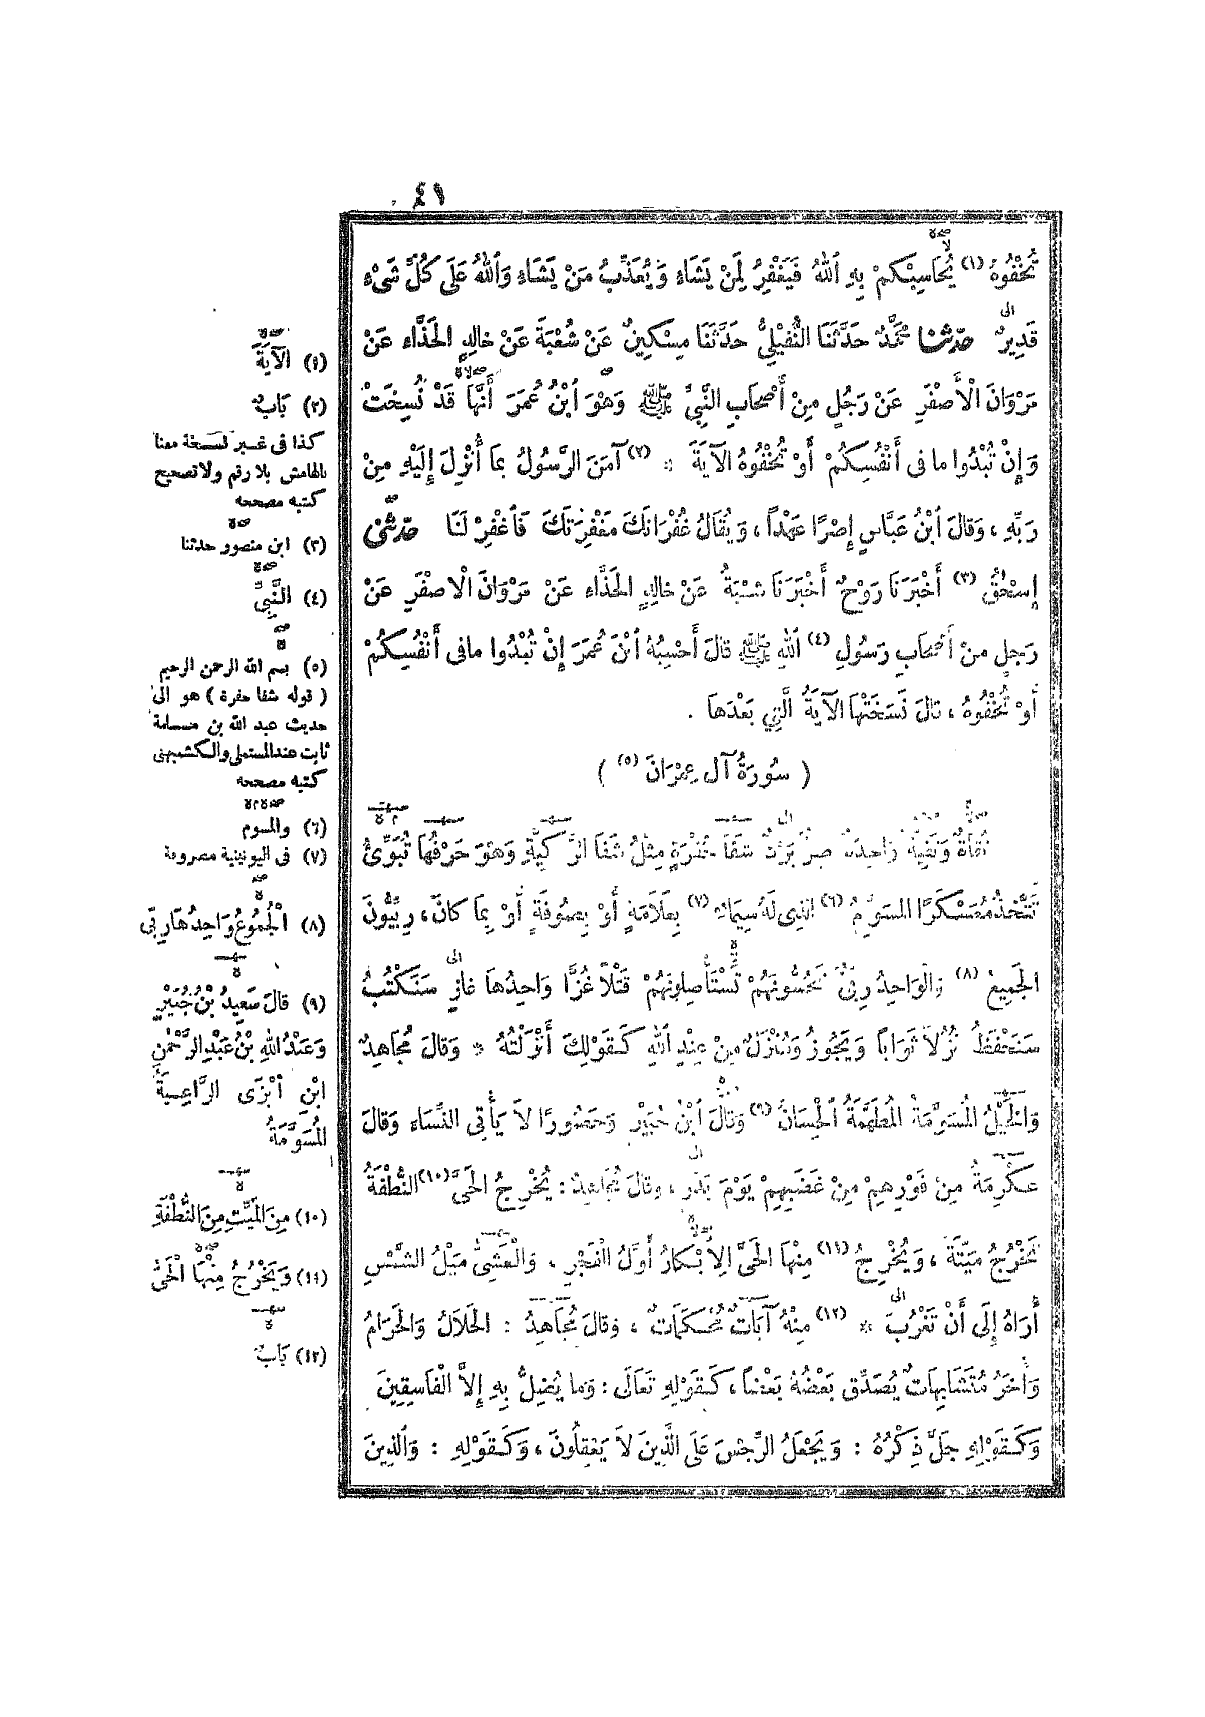 ٤١
تُخْفُوهُ (١) يُحَاسِبْكُمْ بِهِ ٱللهُ فَيَغْفِرُ لِمَنْ يَشَاءُ وَيُعَذِّبُ مَنْ يَشَاءُ وَٱللهُ عَلَى كُلِّ شَىْءٍ
قَدِيرٌ حَدَّثَنَا مُحَمَّدٌ حَدَّثَنَا النُّفَيْلِىُّ حَدَّثَنَا مِسْكِينٌ عَنْ شُعْبَةَ عَنْ خَالِدٍ الْحَذَّاءِ عَنْ
مَرْوَانَ الْأَصْفَرِ عَنْ رَجُلٍ مِنْ أَصْحَابِ النَّبِىِّ ﷺ وَهْوَ ٱبْنُ عُمَرَ أَنَّهَا قَدْ نُسِخَتْ
وَإِنْ تُبْدُوا مَا فِى أَنْفُسِكُمْ أَوْ تُخْفُوهُ الْآيَةَ * (٢) آمَنَ الرَّسُولُ بِمَا أُنْزِلَ إِلَيْهِ مِنْ
رَبِّهِ ، وَقَالَ ٱبْنُ عَبَّاسٍ إِصْرًا عَهْدًا ، وَيُقَالُ غُفْرَانَكَ مَغْفِرَتَكَ فَاغْفِرْ لَنَا حَدَّثَنِى
إِسْحٰقُ (٣) أَخْبَرَنَا رَوْحٌ أَخْبَرَنَا شُعْبَةُ عَنْ خَالِدٍ الْحَذَّاءِ عَنْ مَرْوَانَ الْأَصْفَرِ عَنْ
رَجُلٍ مِنْ أَصْحَابِ رَسُولِ (٤) ٱللهِ ﷺ قَالَ أَحْسِبُهُ ٱبْنَ عُمَرَ إِنْ تُبْدُوا مَا فِى أَنْفُسِكُمْ
أَوْ تُخْفُوهُ ، قَالَ نَسَخَتْهَا الْآيَةُ الَّتِي بَعْدَهَا .
( سُورَةُ آلِ عِمْرَانَ (٥) )
تُقَاةٌ وَتَقِيَّةٌ وَاحِدَةٌ صِرٌّ بَرْدٌ شَفَا حُفْرَةٍ مِثْلُ شَفَا الرَّكِيَّةِ وَهْوَ حَرْفُهَا تُبَوِّئُ
تَتَّخِذُ مُعَسْكَرًا الْمُسَوَّمُ (٦) الَّذِى لَهُ سِيمَاءٌ (٧) بِعَلَامَةٍ أَوْ بِصُوفَةٍ أَوْ بِمَا كَانَ ، رِبِّيُّونَ
الْجَمِيعُ (٨) وَالْوَاحِدُ رِبِّىٌّ تَحُسُّونَهُمْ تَسْتَأْصِلُونَهُمْ قَتْلًا غُزًّا وَاحِدُهَا غَازٍ سَنَكْتُبُ
سَنَحْفَظُ نُزُلًا ثَوَابًا وَيَجُوزُ وَمُنْزَلٌ مِنْ عِنْدِ ٱللهِ كَقَوْلِكَ أَنْزَلْتُهُ * وَقَالَ مُجَاهِدٌ
وَالْخَيْلُ الْمُسَوَّمَةُ الْمُطَهَّمَةُ الْحِسَانُ (٩) وَقَالَ ٱبْنُ جُبَيْرٍ وَحَصُورًا لَا يَأْتِى النِّسَاءَ وَقَالَ
عِكْرِمَةُ مِنْ فَوْرِهِمْ مِنْ غَضَبِهِمْ يَوْمَ بَدْرٍ ، وَقَالَ مُجَاهِدٌ : يُخْرِجُ الْحَىَّ (١٠) النُّطْفَةُ
تَخْرُجُ مَيِّتَةً ، وَيُخْرِجُ (١١) مِنْهَا الْحَىَّ الْإِبْكَارُ أَوَّلُ الْفَجْرِ ، وَالْعَشِىُّ مَيْلُ الشَّمْسِ
أُرَاهُ إِلَى أَنْ تَغْرُبَ * (١٢) مِنْهُ آيَاتٌ مُحْكَمَاتٌ ، وَقَالَ مُجَاهِدٌ : الْحَلَالُ وَالْحَرَامُ
وَأُخَرُ مُتَشَابِهَاتٌ يُصَدِّقُ بَعْضُهُ بَعْضًا ، كَقَوْلِهِ تَعَالَى : وَمَا يُضِلُّ بِهِ إِلَّا الْفَاسِقِينَ
وَكَقَوْلِهِ جَلَّ ذِكْرُهُ : وَيَجْعَلُ الرِّجْسَ عَلَى الَّذِينَ لَا يَعْقِلُونَ ، وَكَقَوْلِهِ : وَالَّذِينَ
(١) الْآيَةَ
(٢) بَابٌ
كذا فى غير نسخة معنا
بالهامش بلا رقم ولا تصحيح
كتبه مصححه
(٣) ابن منصور حدثنا
(٤) النَّبِىِّ
(٥) بسم الله الرحمن الرحيم
( قوله شفا حفرة ) هو الى
حديث عبد الله بن مسلمة
ثابت عند المستملى والكشميهنى
كتبه مصححه
(٦) والمسوم
(٧) فى اليونينية مصروفة
(٨) الْجُمُوعُ وَاحِدُهَا رِبِّى
(٩) قَالَ سَعِيدُ بْنُ جُبَيْرٍ
وَعَبْدُ اللهِ بْنُ عَبْدِ الرَّحْمٰنِ
ابْنِ أَبْزَى الرَّاعِيَةُ
الْمُسَوَّمَةُ
(١٠) مِنَ الْمَيِّتِ مِنَ النُّطْفَةِ
(١١) وَيَخْرُجُ مِنْهَا الْحَىُّ
(١٢) بَابٌ